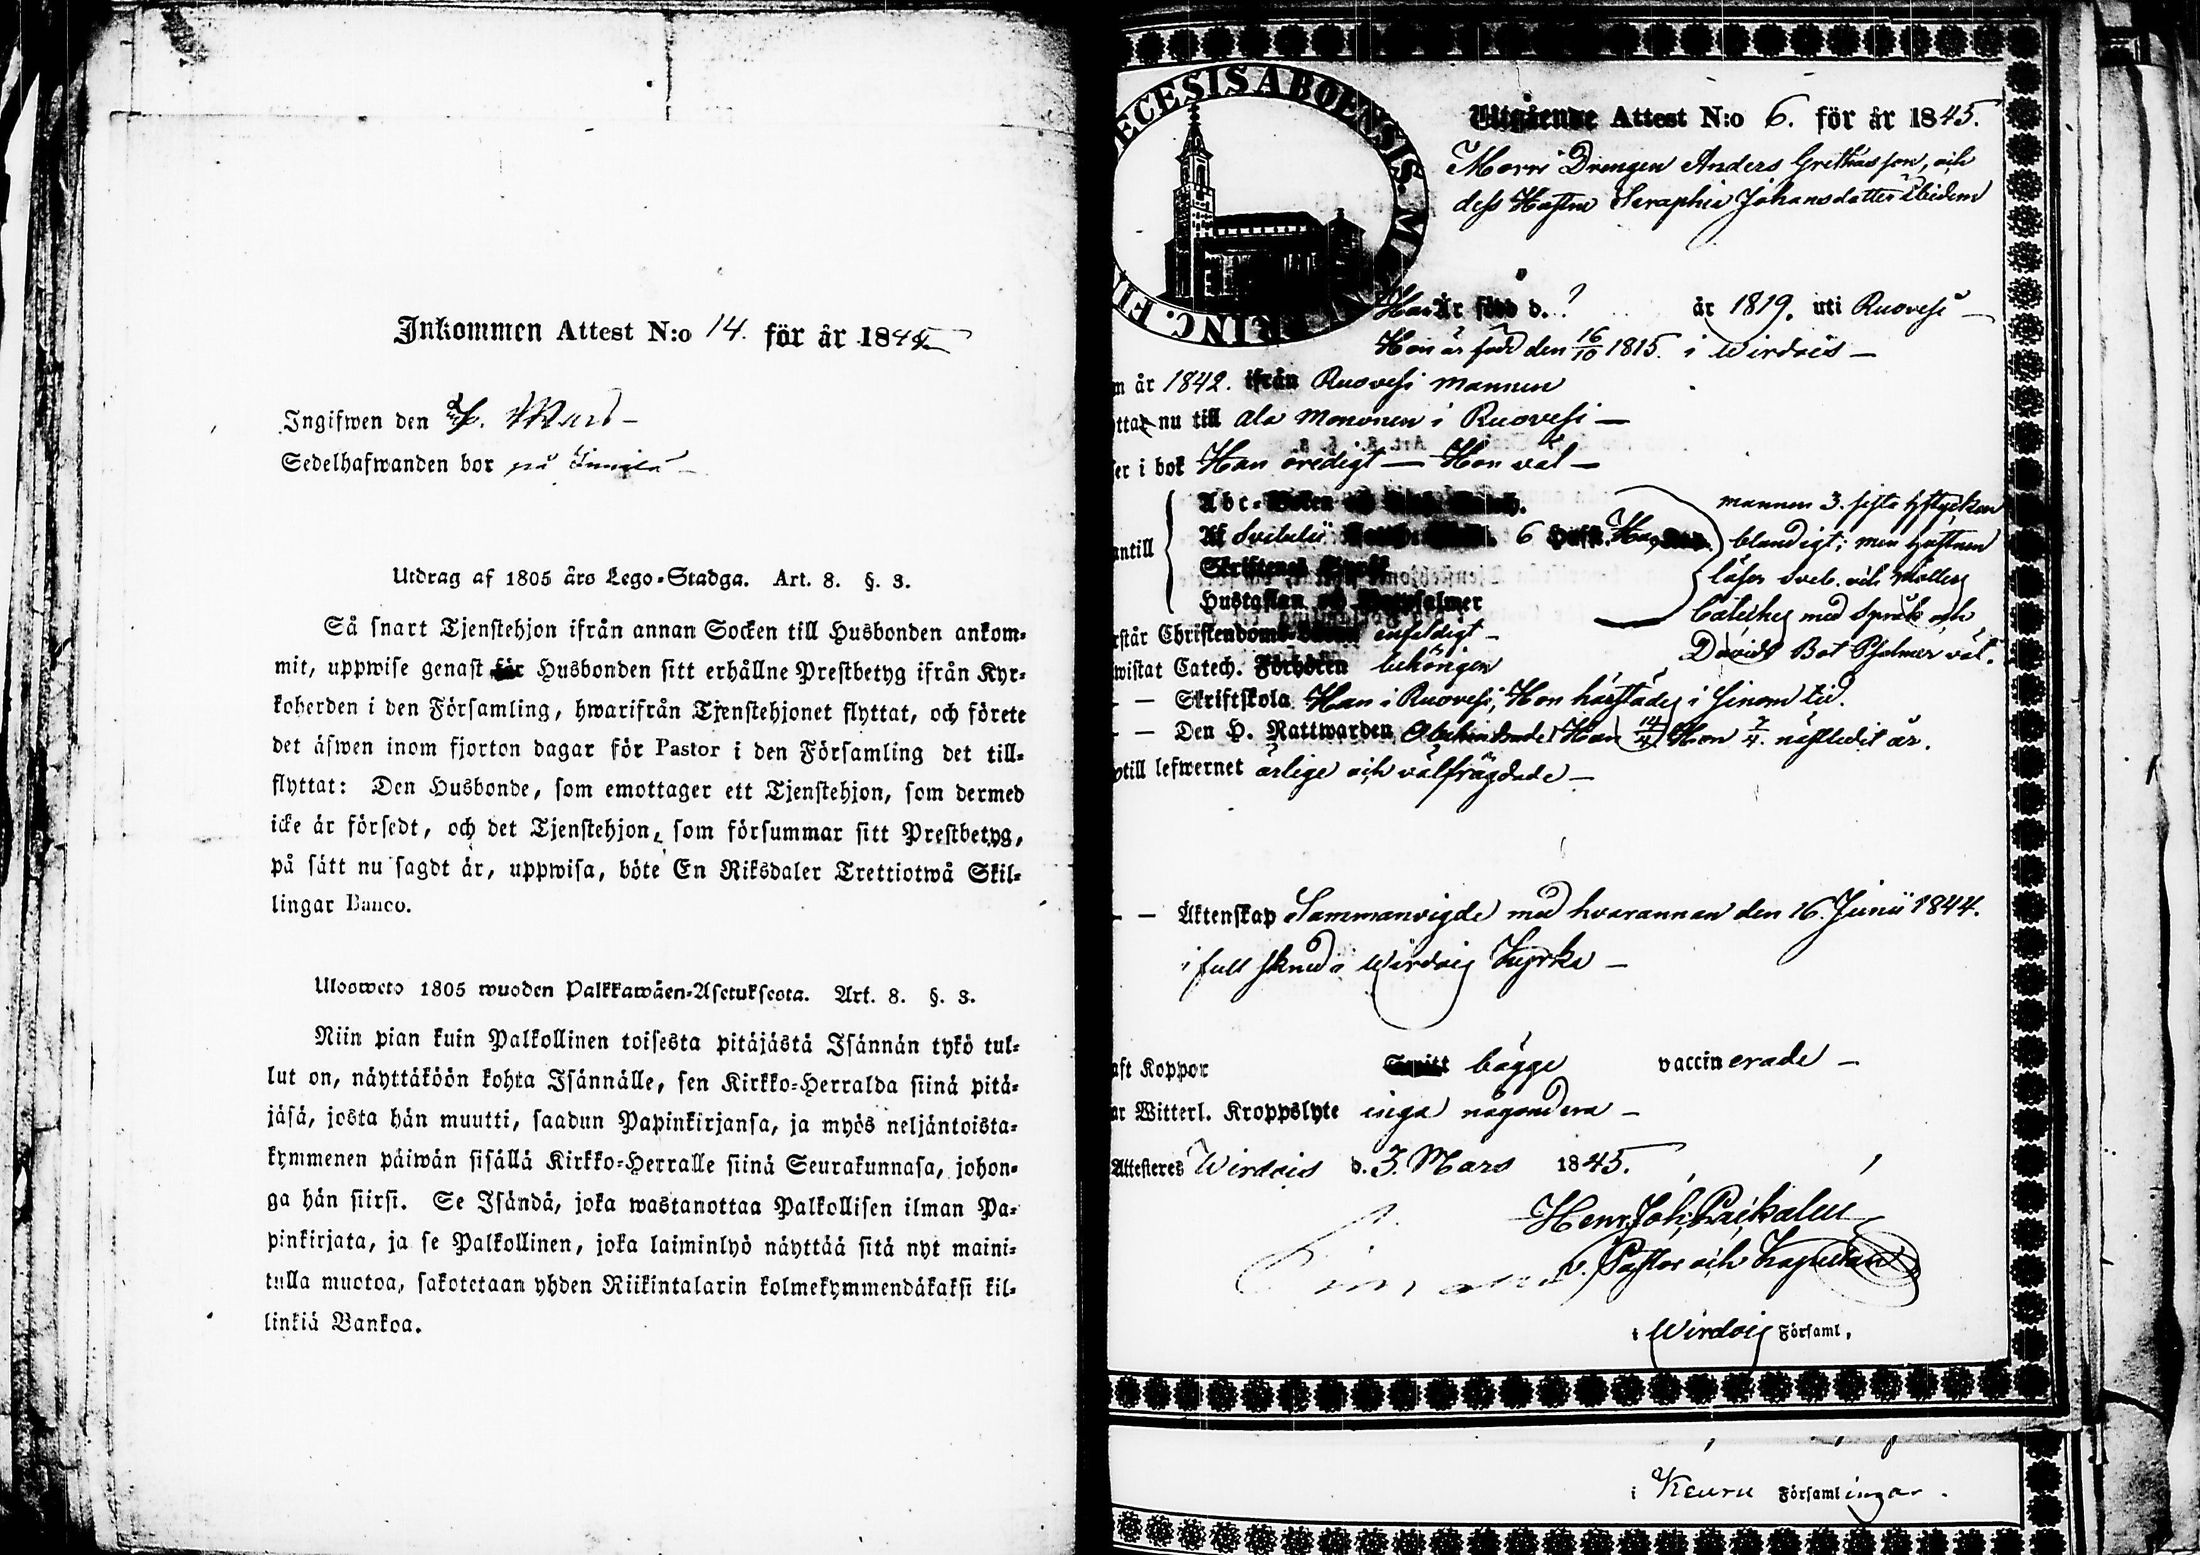 Inkommen Attest N:o 14. för år 1845
Ingifwen den Mars
Sedelhafwanden bor på
Utdrag af 1805 års Lego-Stadga. Art. 8. §. 3.
Så snart Tjenstehjon ifrån annan Socken till Husbonden ankom-
mit, uppwise genast för Husbonden sitt erhållne Prestbetyg ifrån Kyr-
koherden i den Församling, hwarifrån Tjenstehjonet flyttat, och förete
det äfwen inom fjorton dagar för Pastor i den Församling det till-
flyttat: Den Husbonde, som emottager ett Tjenstehjon, som dermed
icke är försedt, och det Tjenstehjon, som försummar sitt Prestbetyg,
på sätt nu sagdt är, uppwisa, böte En Riksdaler Trettiotwå Skil-
lingar Banco.
Ulosweto 1805 wuoden Palkkawäen-Asetuksesta. Art. 8. §. 3.
Niin pian kuin Palkollinen toisesta pitäjästä Isännän tykö tul-
lut on, näyttäköön kohta Isännälle, sen Kirkko-Herralda siinä pitä-
jäsä, josta hän muutti, saadun Papinkirjansa, ja myös neljäntoista-
kymmenen päiwän sisällä Kirkko-Herralle siinä Seurakunnasa, johon-
ga hän siirsi. Se Isändä, joka wastanottaa Palkollisen ilman Pa-
pinkirjata, ja se Palkollinen, joka laiminlyö näyttää sitä nyt maini-
tulla muotoa, sakotetaan yhden Riikintalarin kolmekymmendäkaksi kil-
linkiä Bankoa.
ECESIS ABOENSIS. M
PRINC. FIN
Utgående Attest N:o 6. för år 1845.
Drengen Anders Grethasson, och
dess Hustru Seraphia Johansdotter ibidem
Han Är född d. ? år 1819. uti Ruovesi
Hon är född den 16/10 1815. i Wirdois
m år 1842. ifrån Ruovesi mannen
ttar nu till Ala Mononen i Ruovesi
er i bok Han oredigt Hon väl
Abc-Boken
mannen 3. sista hfstycken
antill Af Svebelii 6 Hufst. Han
blandigt; men hustrun
läser Sveb. och Möllers
Skriftenes
Cateches med Språk och
Hustaflan
Davids Bot Psalmer väl.
rstår Christendoms enfaldigt
wistat Catech. Förhören behörigen
— Skriftskola Han i Ruovesi, Hon härstädes i sinom tid.
— Den H. Nattwarden Han 14/4 Hon 7/4. nästledit år.
till lefwernet ärlige och välfrägdade
— Äktenskap Sammanvigde med hvarannan den 16. Junii 1844.
i full skrud i Wirdois Kyrka
aft Koppor bägge vaccinerade
ar Witterl. Kroppslyte inga någondera
Attesteres Wirdois d. 3. Mars 1845.
Henr. Joh.
v. Pastor och Kapellan
i Wirdois Församl.
i Keuru Församlingar.